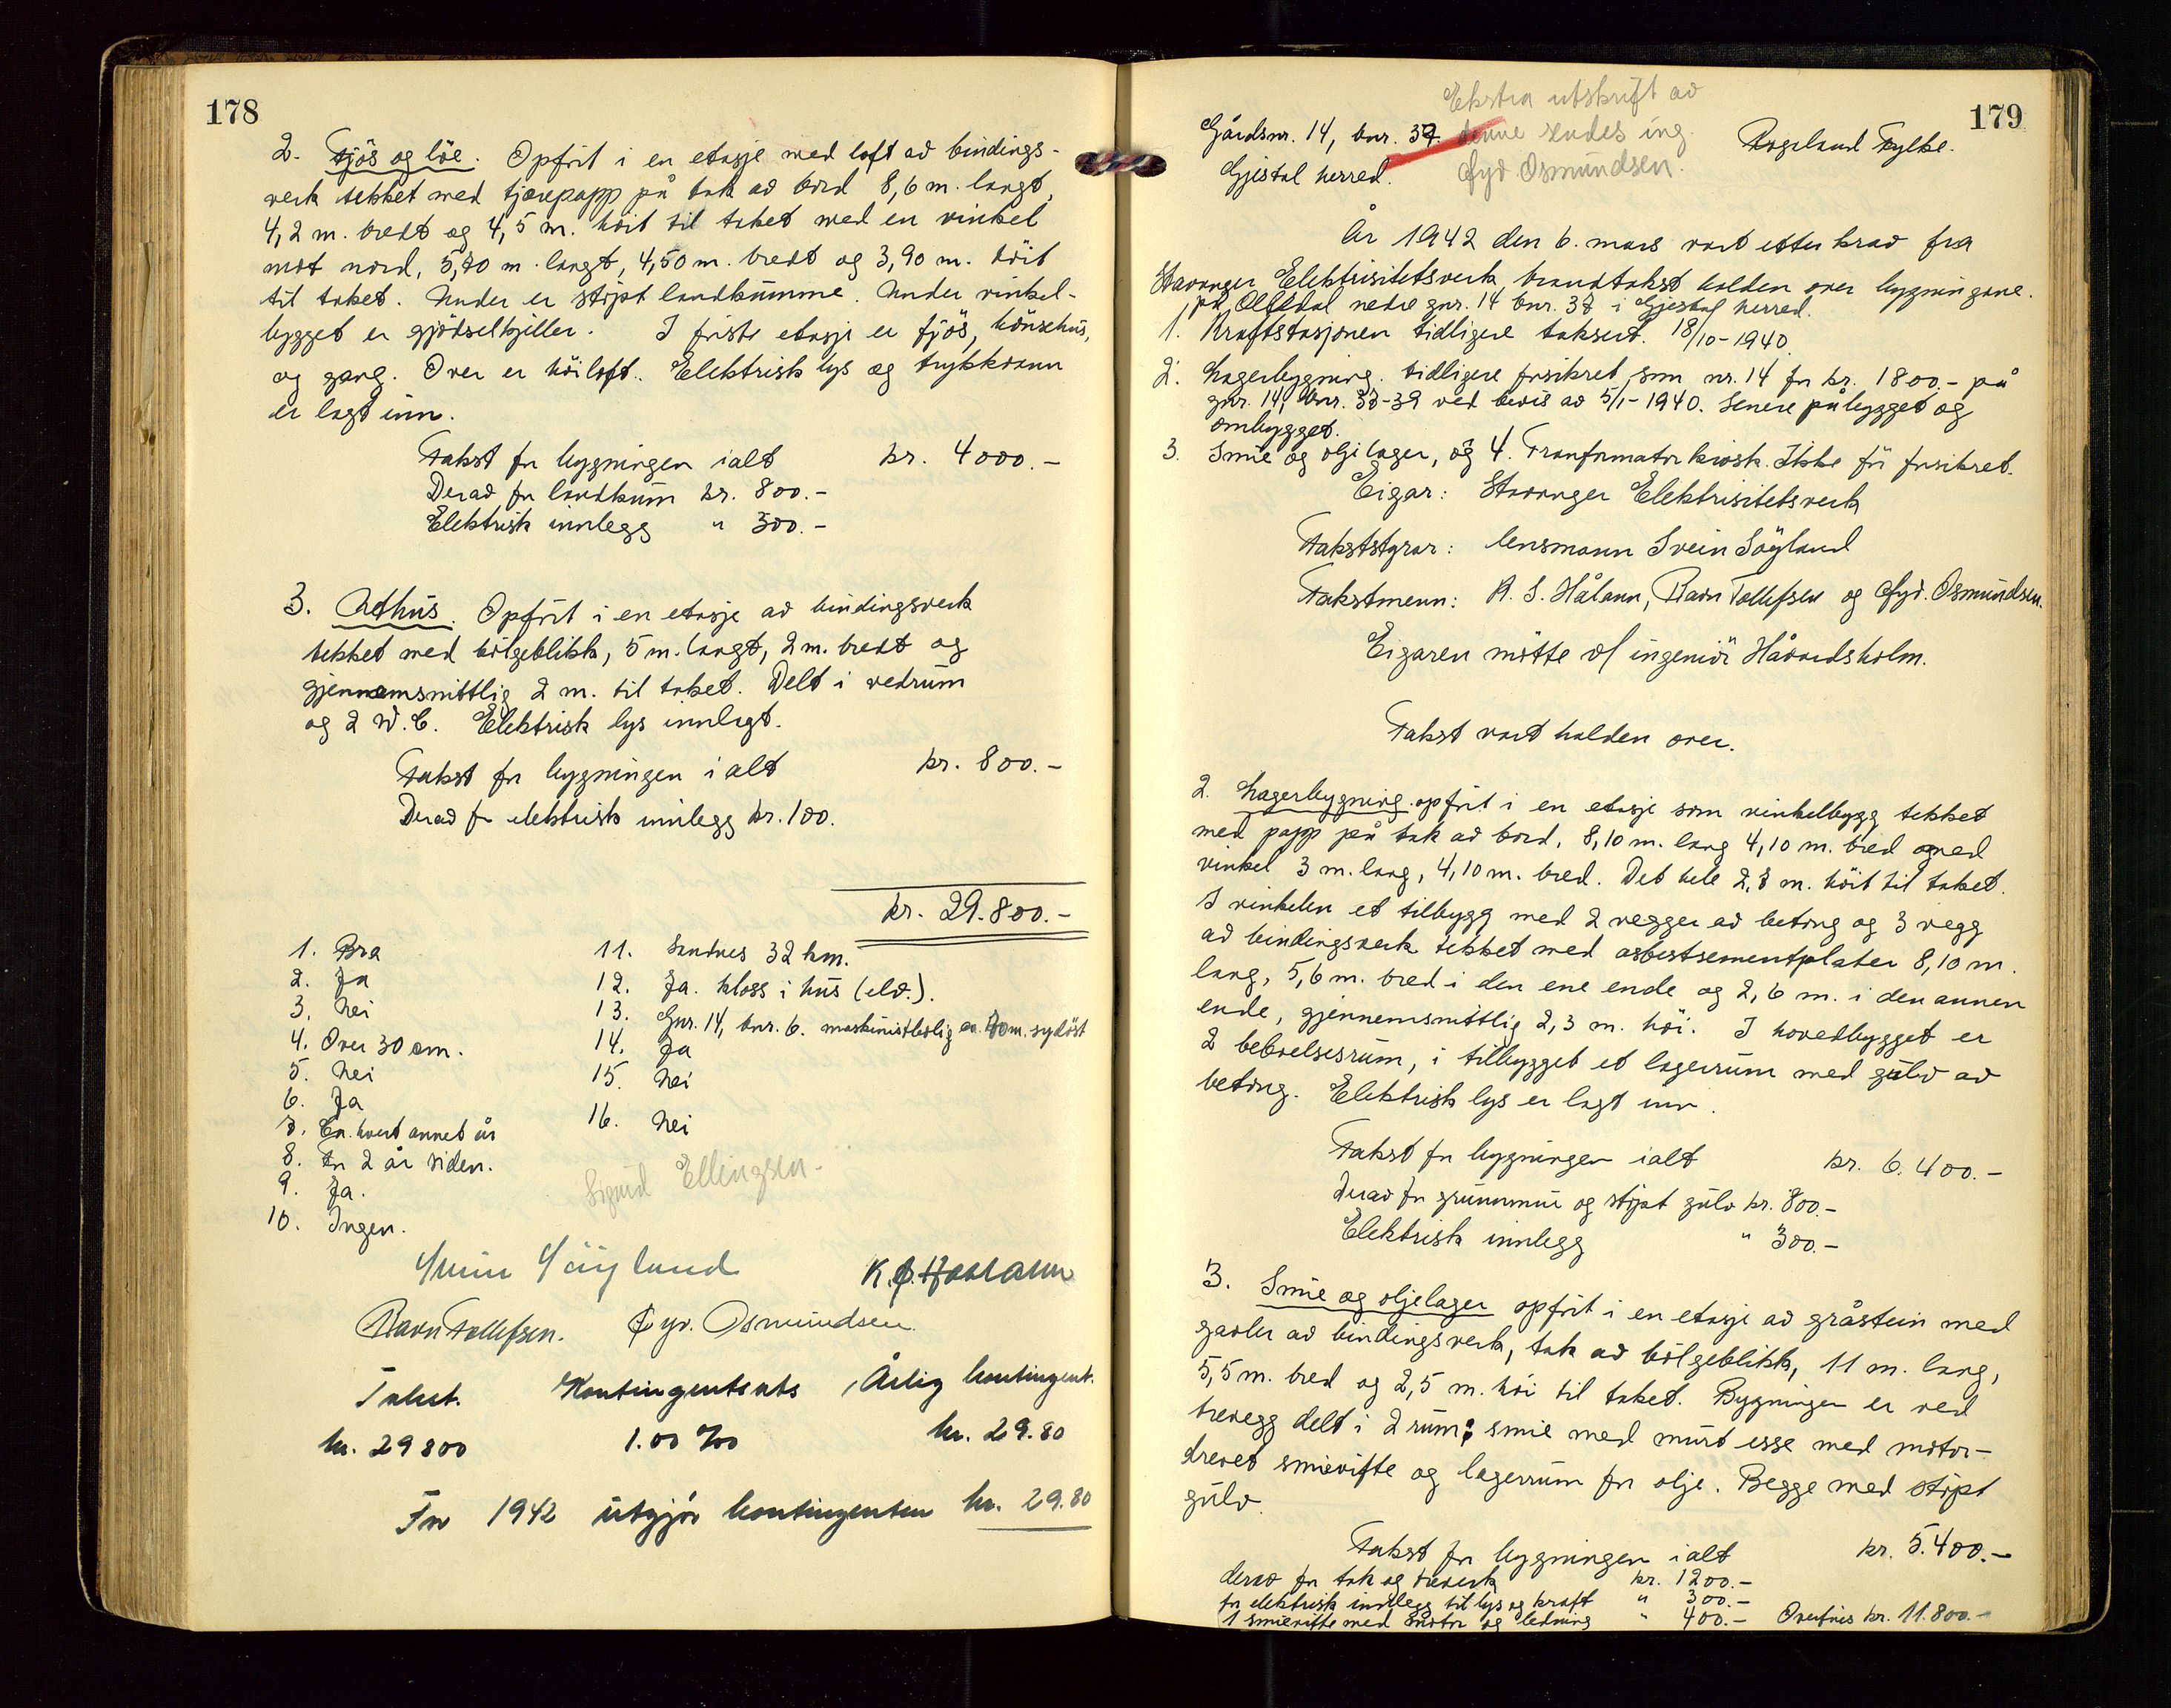 178
2. Fjös og löe. Opfört i en etasje med loft av bindings-
verk tekket med tjærepapp på tak av bord 8,6 m. langt,
4,2 m. bredt og 4,5 m. höit til taket med en vinkel
mot nord, 5,70 m. langt, 4,50 m. bredt og 3,90 m. höit
til taket. Under er stöpt landkumme. Under vinkel-
bygget er gjödselkjeller. I förste etasje er fjös, hönsehus,
og gang. Over er höiloft. Elektrisk lys og trykkvann
er lagt inn.
Takst for bygningen ialt kr. 4000.-
Derav for landkum kr. 800.-
Elektrisk innlegg " 300.-
3. Uthus. Opfört i en etasje av bindingsverk
tekket med bölgeblikk, 5 m. langt, 2 m. bredt og
gjennemsnittlig 2 m. til taket. Delt i vedrum
og 2 W.C. Elektrisk lys innlagt.
Takst for bygningen i alt kr. 800.-
Derav for elektrisk innlegg kr. 100.
kr. 29.800.-
1. Bra
2. Ja
3. Nei
4. Over 30 cm.
5. Nei
6. Ja
7. Ca. hvert annet år
8. For 2 år siden.
9. Ja.
10. Ingen.
11. Sandnes 32 km.
12. Ja. kloss i hus (elv.).
13. Gnr. 14, bnr. 6. maskinistbolig ca. 70 m. sydöst
14. Ja
15. Nei
16. Nei
Sigurd Ellingsen-
Svein Söyland K. S. Haaland
Ravn Tollefsen. Øyv. Osmundsen.
Takst. Kontingentsats Årlig kontingent.
kr. 29800 1.00 ‰ kr. 29.80
For 1942 utgjör kontingenten kr. 29.80
179
Ekstra utskrift av
denne sendes ing.
Øyv Osmundsen.
Gårdsnr. 14, bnr. 37. Rogaland Fylke.
Gjestal herred.
År 1942 den 6. mars vart etter krav fra
Stavanger Elektrisitetsverk brandtakst halden over bygningane.
på Oltedal nedre gnr. 14 bnr. 37 i Gjestal herred.
1. Kraftstasjonen tidligere taksert. 18/10-1940
2. Lagerbygning. tidligere forsikret som nr. 14 for kr. 1800.- på
gnr. 14, bnr. 37-39 ved bevis av 5/1-1940. Senere påbygget og
ombygget.
3. Smie og oljelager, og 4. Tranformator kiosk. Ikke för forsikret.
Eigar: Stavanger Elektrisitetsverk
Takststyrar: lensmann Svein Söyland
Takstmenn: K. S. Håland, Ravn Tollefsen og Øyv. Osmundsen.
Eigaren mötte v/ ingeniör Håvardsholm.
Takst vart halden over.
2. Lagerbygning. opfört i en etasje som vinkelbygg tekket
med papp på tak av bord, 8,10 m. lang 4,10 m. bred og med
vinkel 3 m. lang, 4,10 m. bred. Det hele 2,8 m. höit til taket.
I vinkelen et tilbygg med 2 vegger av betong og 3 vegg
av bindingsverk tekket med asbestsementplater 8,10 m.
lang, 5,6 m. bred i den ene ende og 2,6 m. i den annen
ende, gjennemsnittlig 2,3 m. höi. I hovedbygget er
2 beboelsesrum, i tilbygget et lagerrum med gulv av
betong. Elektrisk lys er lagt inn.
Takst for bygningen ialt kr. 6.400.-
Derav for grunnmur og stöpt gulv kr. 800.-
Elektrisk innlegg " 300.-
3. Smie og oljelager opfört i en etasje av gråstein med
gavler av bindingsverk, tak av bölgeblikk, 11 m. lang,
5,5 m. bred og 2,5 m. höi til taket. Bygningen er ved
trevegg delt i 2 rum; smie med murt esse med motor-
drevet smievifte og lagerrum for olje. Begge med stöpt
gulv.
Takst for bygningen ialt kr. 5.400.-
derav for tak og treverk kr. 1200.-
for elektrisk innlegg til lys og kraft " 300.-
1 smievifte med motor og ledning " 400.- Overföres kr. 11.800.-